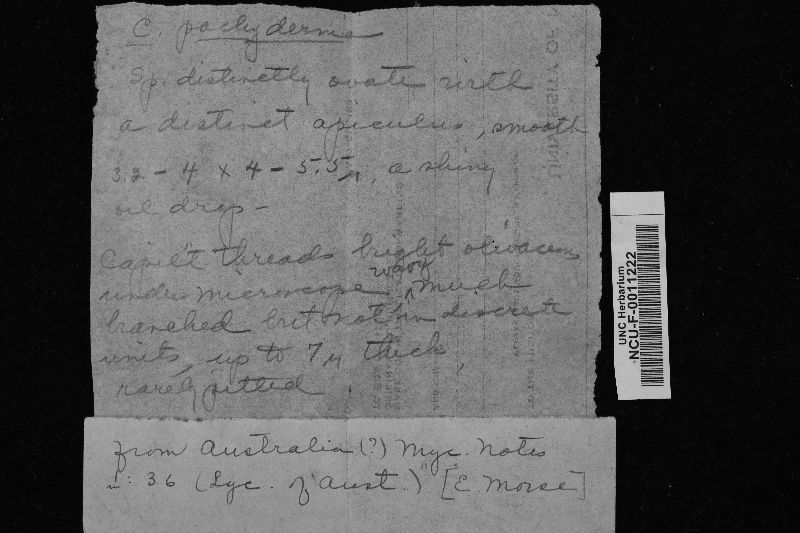 C. pachyderma
Sp. distinctly ovate with
a distinct apiculus, smooth
3.2 - 4 x 4 - 5.5 µ, a shiny
oil drop -
Capil't threads bright olivaceous
under microscope, wavy much
branched but not in discrete
units, up to 7 µ thick,
rarely pitted
from Australia (?) Myc. Notes
n: 36 (Lyc. of Aust.) [E. Morse]
UNC Herbarium
NCU-F-0011222